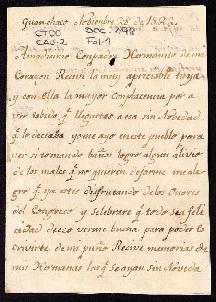 Guanchaco Nobiembre 28 de 1822
CTDO DOC. 298
CAJ-2 Fol-1
Amadisimo Compadre Hermanito de mi
Corazon Recivi la muy apreciable tuya
y con ella la mayor Complacencia por a
ver sabido q llegastes a esa sin Novedad
q lo deceaba yo me ayo en este pueblo para
ver si tomando baños logro algun alivio
de los males q no quieren dejarme me ale
gro q ya estes disfrutando de los Onores
del Congreso y celebrare q todo sea feli
cidad deceo verme buena para poder te
escrivirte de mi puño Recive memorias de
mis Hermanas las q se ayan sin Noveda